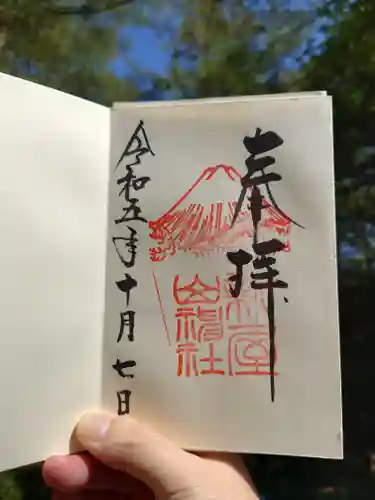 奉拝
新屋
山神社
令和五年十月七日